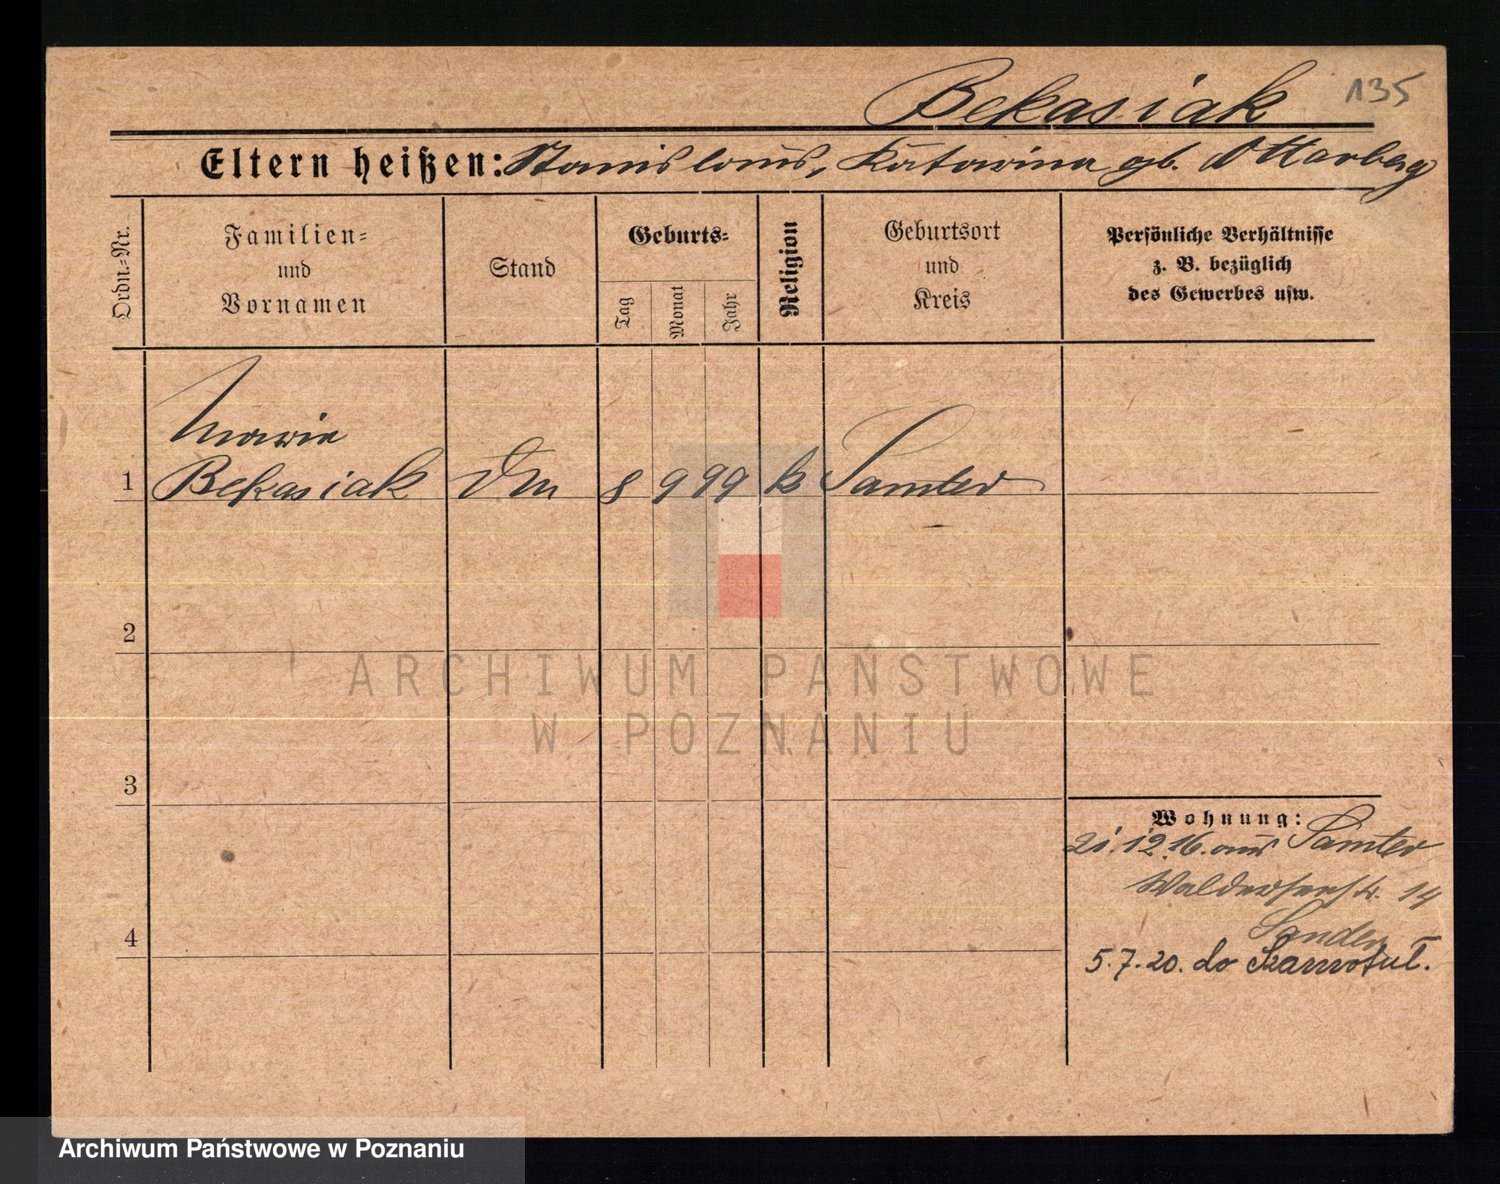 Bekasiak 135
Eltern heißen: Stanislaus, Katarina gb.
Ordn.-Nr.
Familien-
und
Vornamen
Stand
Geburts-
Tag
Monat
Jahr
Religion
Geburtsort
und
Kreis
Persönliche Verhältnisse
z. B. bezüglich
des Gewerbes usw.
Marie
1 Bekasiak 8 9 99 k Samter
2
3
4
Wohnung:
21.12.16. aus Samter
Walderseestr. 14
Sander
5.7.20. do Szamotuł.
ARCHIWUM PAŃSTWOWE
W POZNANIU
Archiwum Państwowe w Poznaniu